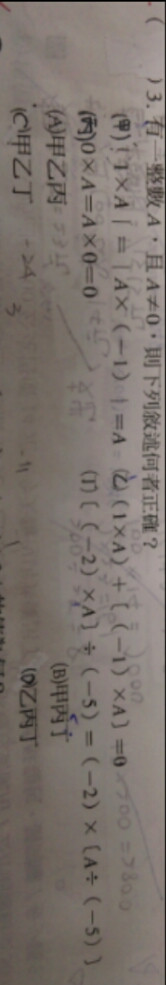 ( )3. 有一整數A，且A≠0，則下列敘述何者正確？
(甲)｜1×A｜=｜A×(-1)｜=A (乙)(1×A)+〔(-1)×A〕=0
(丙)0×A=A×0=0 (丁)〔(-2)×A〕÷(-5)=(-2)×〔A÷(-5)〕
(A)甲乙丙 (B)甲丙丁
(C)甲乙丁 (D)乙丙丁